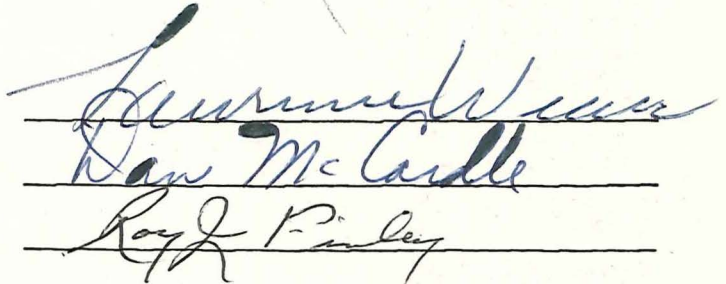 Lawrence Weaver
Dan McCardle
Roy J Finley